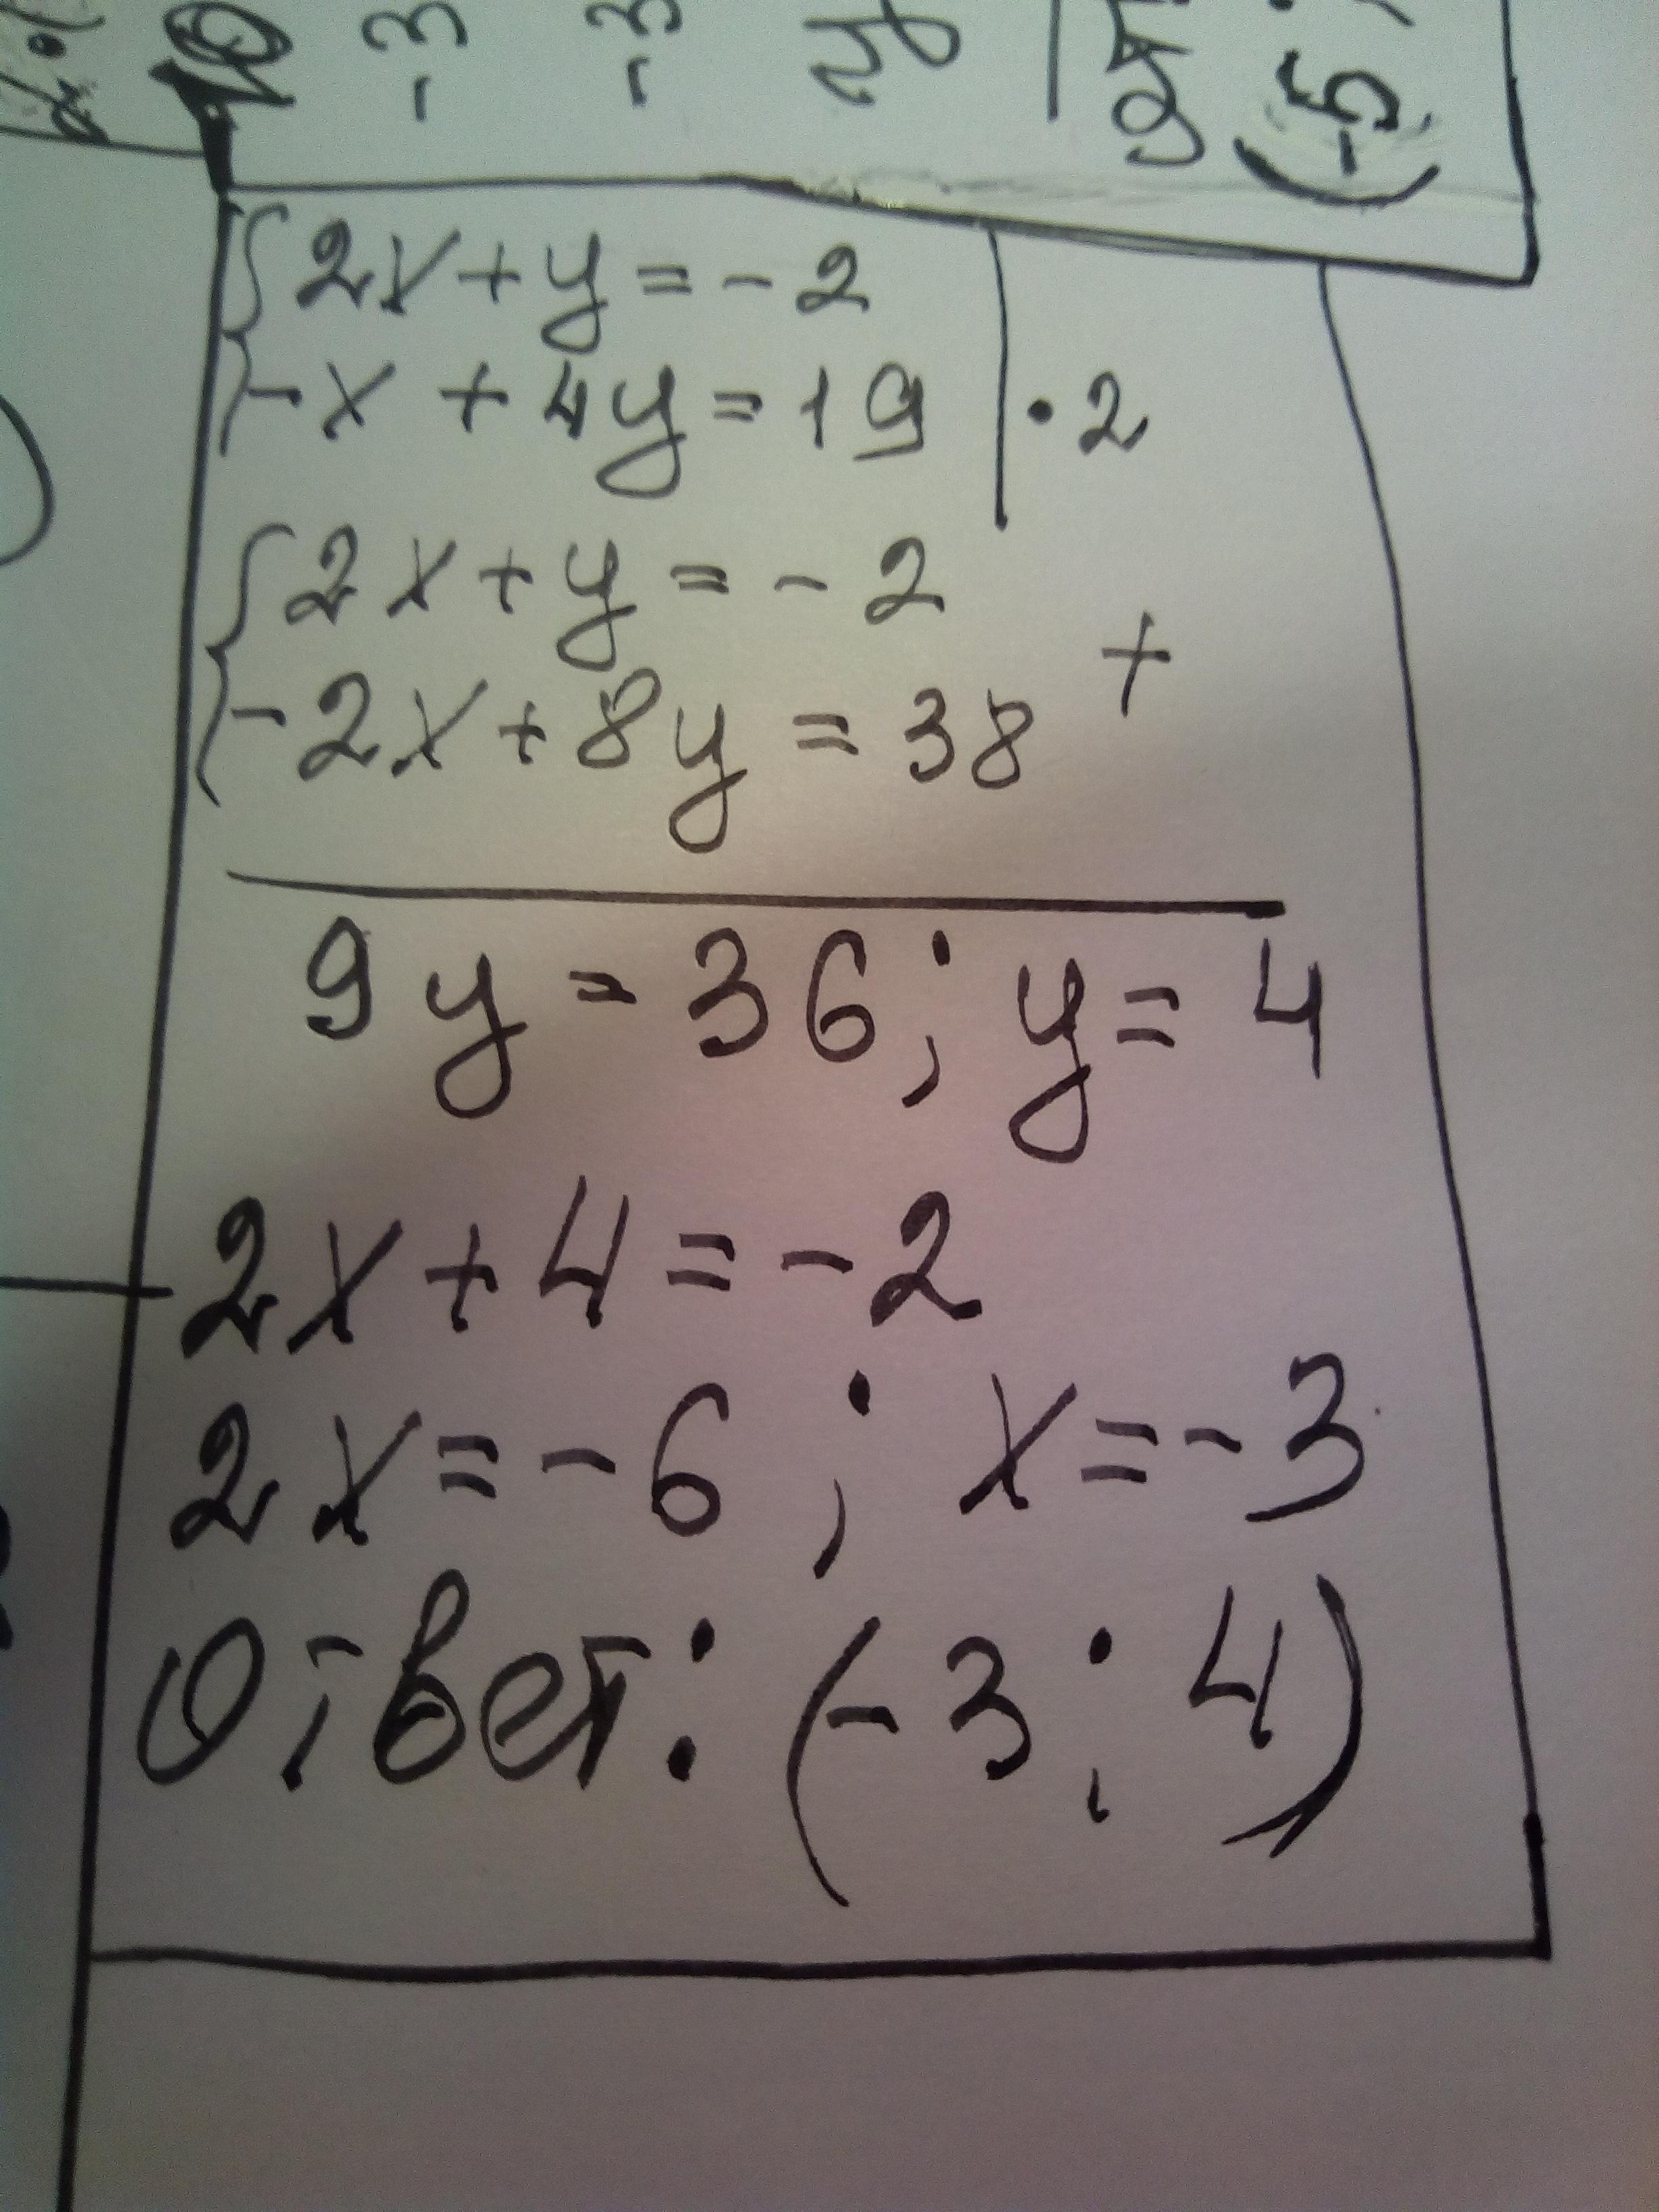 2x+y=-2
-x+4y=19 | · 2
2x+y=-2
-2x+8y=38 +
9y=36; y=4
2x+4=-2
2x=-6; x=-3
Ответ: (-3; 4)